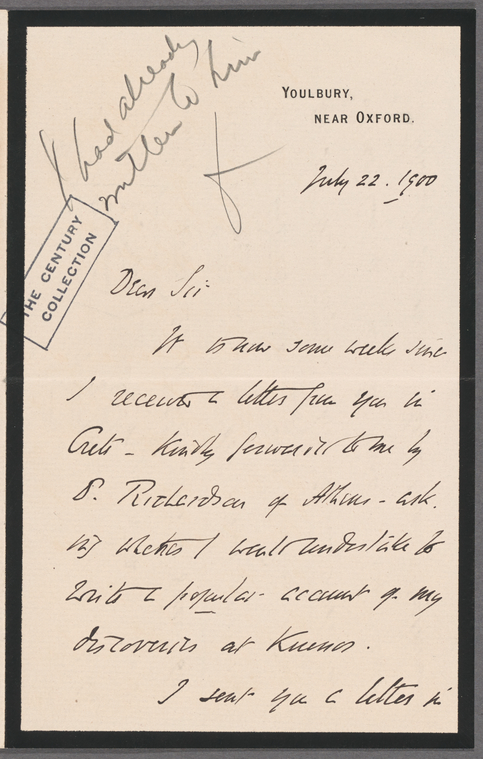 I had already
written to him
THE CENTURY
COLLECTION
YOULBURY,
NEAR OXFORD.
July 22. 1900
Dear Sir
It is now some weeks since
I received a letter from you in
Crete - kindly forwarded to me by
D. Richardson of Athens - ask-
ing whether I would undertake to
write a popular account of my
discoveries at Knossos.
I sent you a letter in